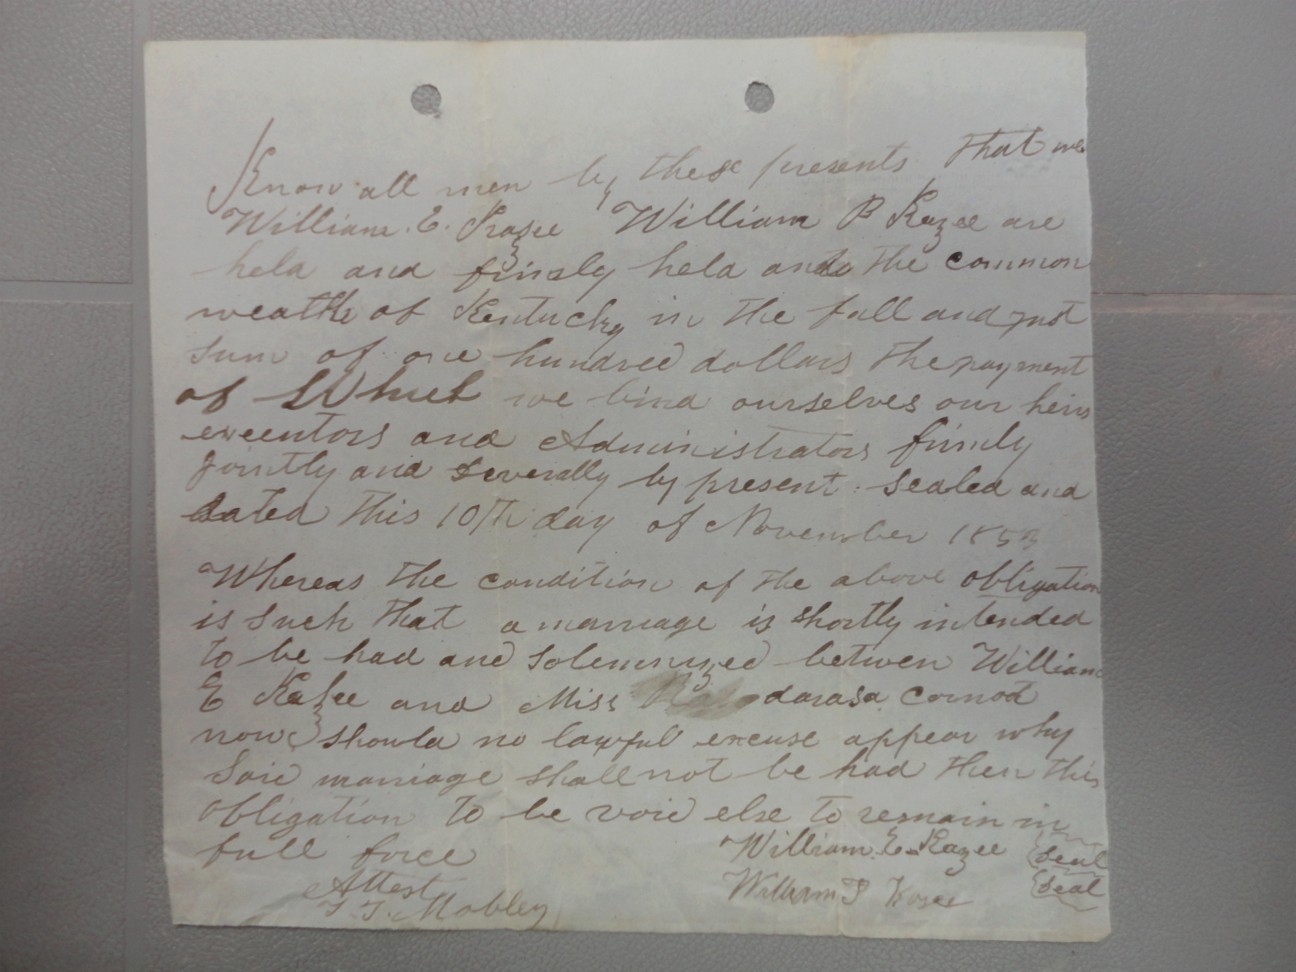 Know all men by these presents that we
William. E. Kazee William P Kazee are
held and firmly held and to the common
wealth of Kentucky in the full and just
sum of one hundred dollars the payment
of Which we bind ourselves our heirs
executors and Administrators firmly
jointly and severally by present. sealed and
dated this 10th day of November 1853
Whereas the condition of the above obligation
is such that a marriage is shortly intended
to be had and solemnized between William
E Kazee and Miss darasa cornod
now should no lawful excuse appear why
Said marriage shall not be had then this
obligation to be void else to remain in
full force
William. E. Kazee Seal
William P Kozee Seal
Attest
T. T. Mobley